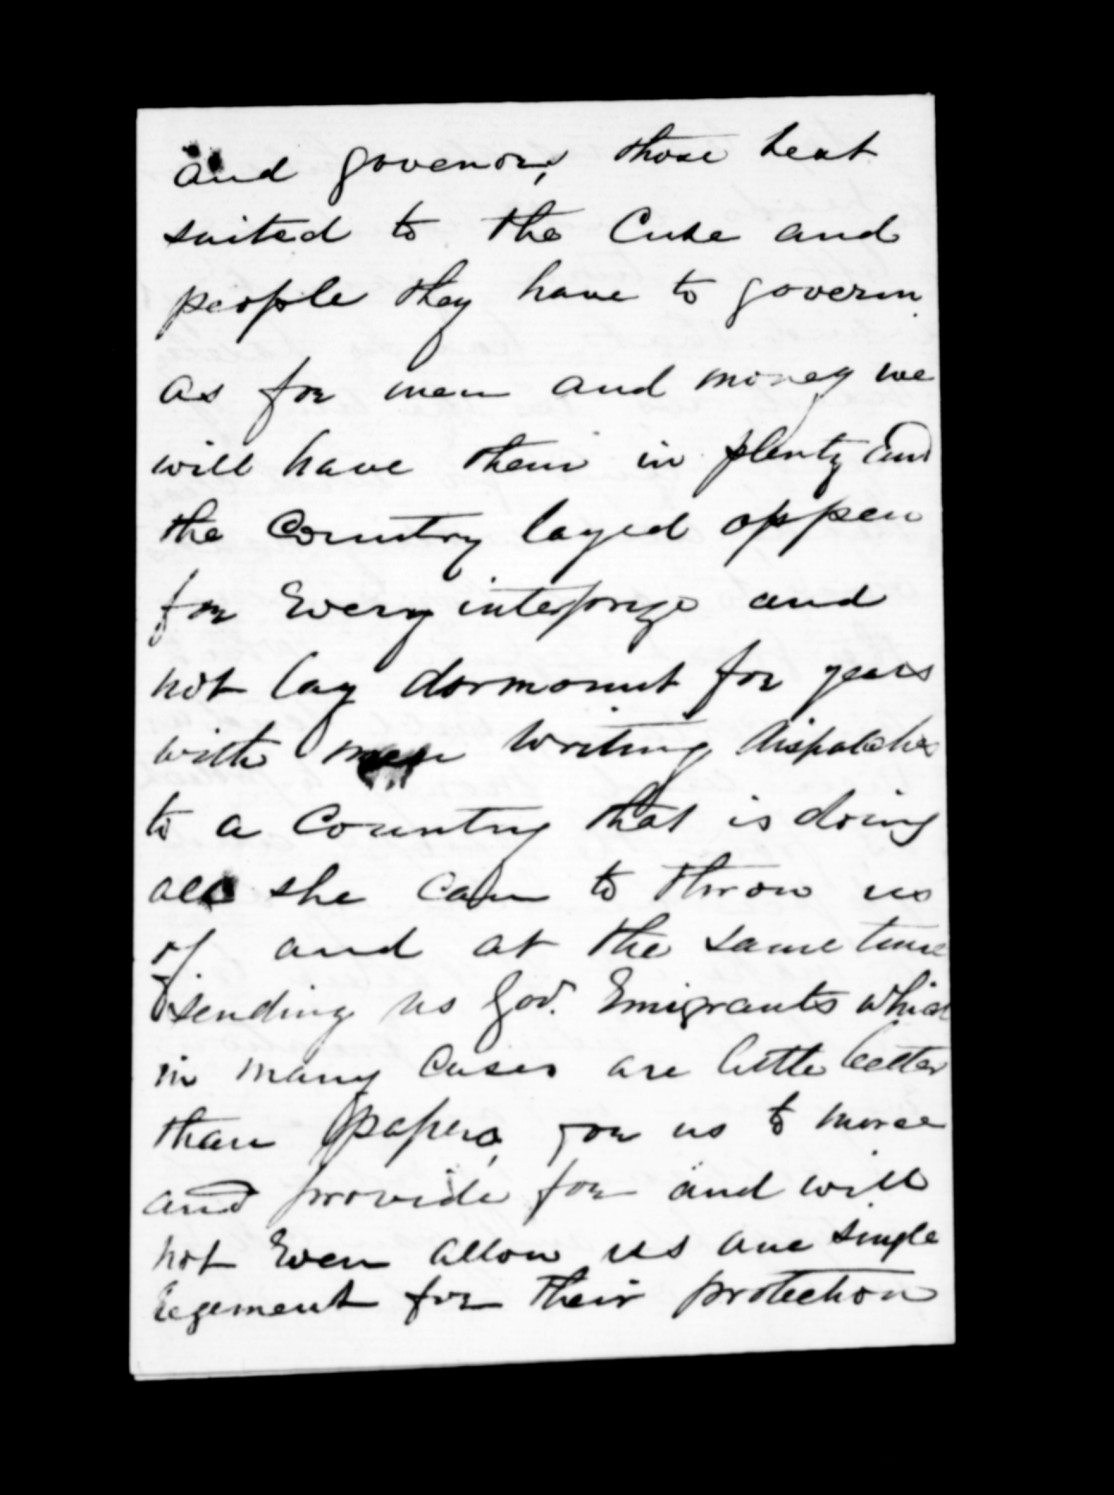 and govenors, those best
suited to the Case and
people they have to goverm
as for men and money we
will have them in plenty and
the Country layed oppen
for Every interprize and
not lay dormount for years
with men writing dispatches
to a Country that is doing
all she can to throw us
of and at the same time
sending us Gov. Emigrants which
in many Cases are little better
than papers, for us to nurse
and provide for and will
not Even allow us one single
regement for their protection